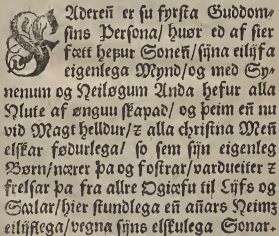 FAdereñ er su fyrsta Guddom-
sins Persona/ huør ed af sier
fætt hefur Soneñ/ sijna eilijfa
eigenlega Mynd/ og med Sy-
nenum og Heiløgum Anda hefur alla
Hlute af øngun skapad/ og þeim eñ nu
vid Magt helldur/ ꝛ alla christna Meñ
elskar fødurlega/ so sem sijn eigenleg
Børn/ nærer þa og fostrar/ vardueiter ꝛ
frelsar þa fra allre Ogiæfu til Lijfs og
Saalar/ hier stundlega eñ añars Heims
eilijflega/ vegna sijns elskulega Sonar.